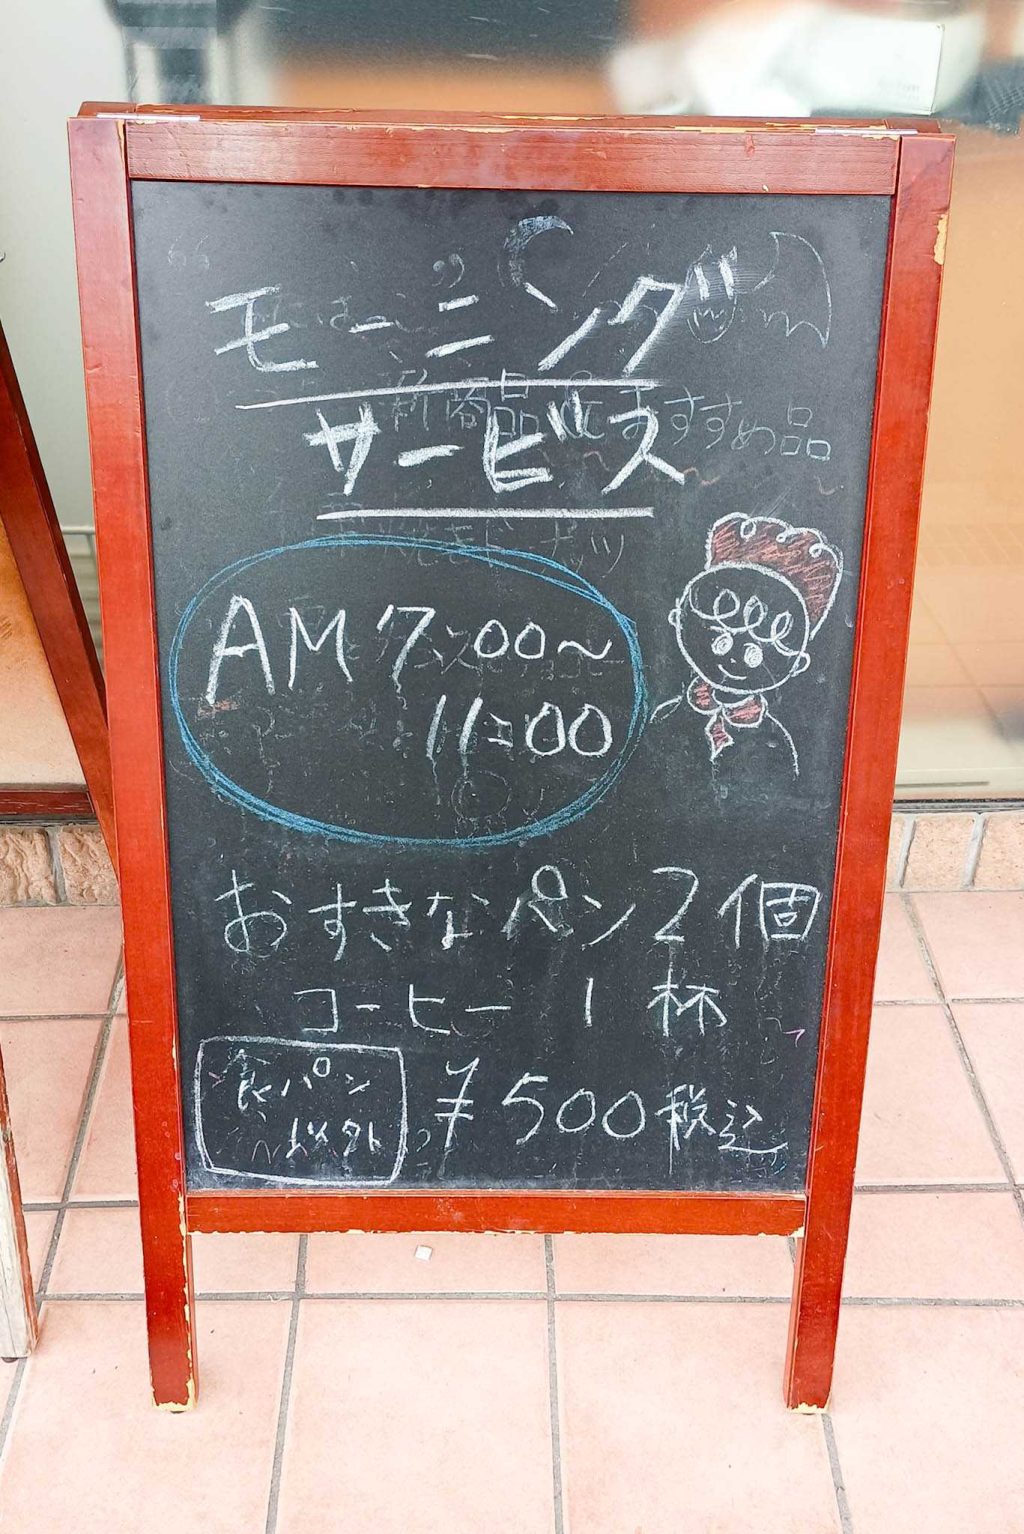 モーニング
サービス
AM 7:00～
11:00
おすきなパン2個
コーヒー 1杯
食パン
以外
¥500税込